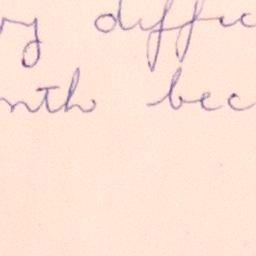 ry diffic
nth bec